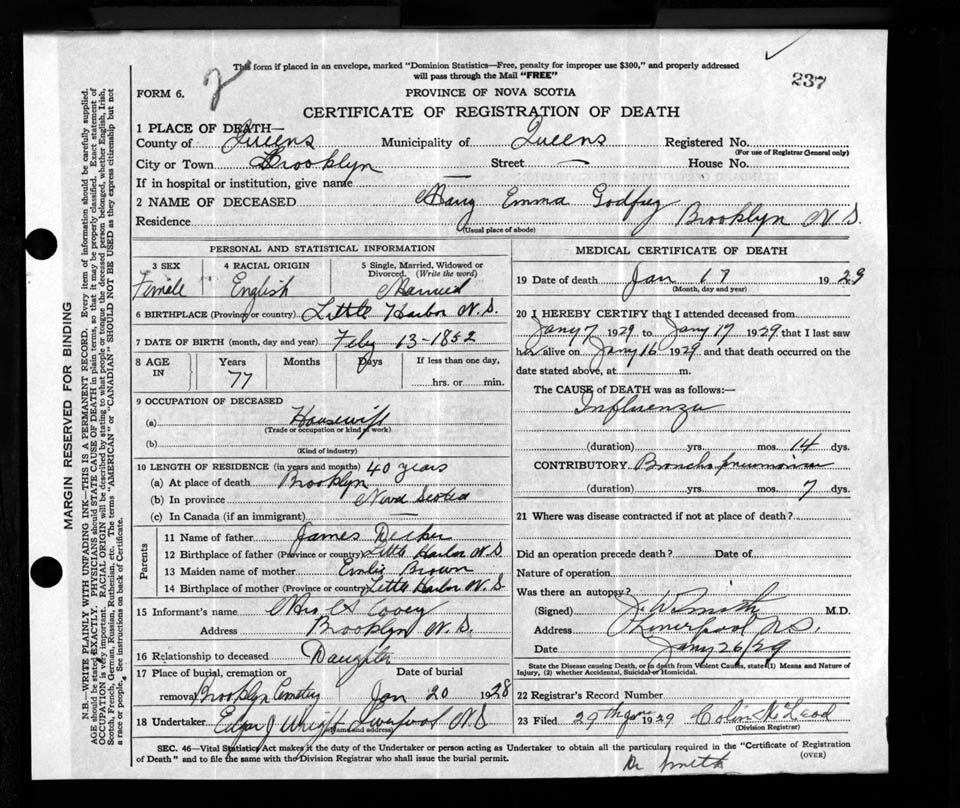 This form if placed in an envelope, marked "Dominion Statistics—Free, penalty for improper use $300," and properly addressed
will pass through the Mail "FREE"
237
FORM 6.
2
PROVINCE OF NOVA SCOTIA
CERTIFICATE OF REGISTRATION OF DEATH
1 PLACE OF DEATH—
County of Queens Municipality of Queens Registered No.
(For use of Registrar General only)
City or Town Brooklyn Street — House No.
If in hospital or institution, give name —
2 NAME OF DECEASED Mary Emma Godfrey
Residence Brooklyn N.S.
(Usual place of abode)
PERSONAL AND STATISTICAL INFORMATION
3 SEX 4 RACIAL ORIGIN 5 Single, Married, Widowed or
Divorced. (Write the word)
Female English Married
6 BIRTHPLACE (Province or country) Little Harbor N.S.
7 DATE OF BIRTH (month, day and year) Feby 13-1852
8 AGE IN Years Months Days If less than one day,
77 hrs. or min.
9 OCCUPATION OF DECEASED
(a) Housewife
(Trade or occupation or kind of work)
(b)
(Kind of industry)
10 LENGTH OF RESIDENCE (in years and months) 40 years
(a) At place of death Brooklyn
(b) In province Nova Scotia
(c) In Canada (if an immigrant) —
Parents
11 Name of father James Decker
12 Birthplace of father (Province or country) Little Harbor N.S
13 Maiden name of mother Brown
14 Birthplace of mother (Province or country) Little Harbor N.S
15 Informant's name Mrs Covey
Address Brooklyn N.S.
16 Relationship to deceased Daughter
17 Place of burial, cremation or Date of burial
removal Brooklyn Cemetery Jan 20 1928
18 Undertaker Edgar J Wright Liverpool N.S
(Name and address)
MEDICAL CERTIFICATE OF DEATH
19 Date of death Jan 17 1929
(Month, day and year)
20 I HEREBY CERTIFY that I attended deceased from
Jany 7 1929 to Jany 17 1929 and that I last saw
her alive on Jany 16 1929 and that death occurred on the
date stated above, at m.
The CAUSE of DEATH was as follows:—
Influenza
(duration) yrs. mos. 14 dys.
CONTRIBUTORY Broncho pneumonia
(duration) yrs. mos. 7 dys.
21 Where was disease contracted if not at place of death?
Did an operation precede death? Date of
Nature of operation
Was there an autopsy?
(Signed) J. W. Smith M.D.
Address Liverpool N.S.
Date Jany 26/29
State the Disease causing Death, or in death from Violent Causes, state (1) Means and Nature of
Injury, (2) whether Accidental, Suicidal or Homicidal.
22 Registrar's Record Number
23 Filed 29th Jan 1929 Colin McLeod
(Division Registrar)
SEC. 46—Vital Statistics Act makes it the duty of the Undertaker or person acting as Undertaker to obtain all the particulars required in the "Certificate of Registration
of Death" and to file the same with the Division Registrar who shall issue the burial permit.
(OVER)
Dr Smith
MARGIN RESERVED FOR BINDING
N.B.—WRITE PLAINLY WITH UNFADING INK—THIS IS A PERMANENT RECORD. Every item of information should be carefully supplied.
AGE should be stated EXACTLY. PHYSICIANS should STATE CAUSE OF DEATH in plain terms, so that it may be properly classified. Exact statement of
OCCUPATION is very important. RACIAL ORIGIN will be described by stating to what people or tongue the deceased person belonged, whether English, Irish,
Scotch, French, German, Russian, Ruthenian, etc. The terms "AMERICAN" or "CANADIAN" SHOULD NOT BE USED as they express citizenship but not
a race or people. See instructions on back of Certificate.